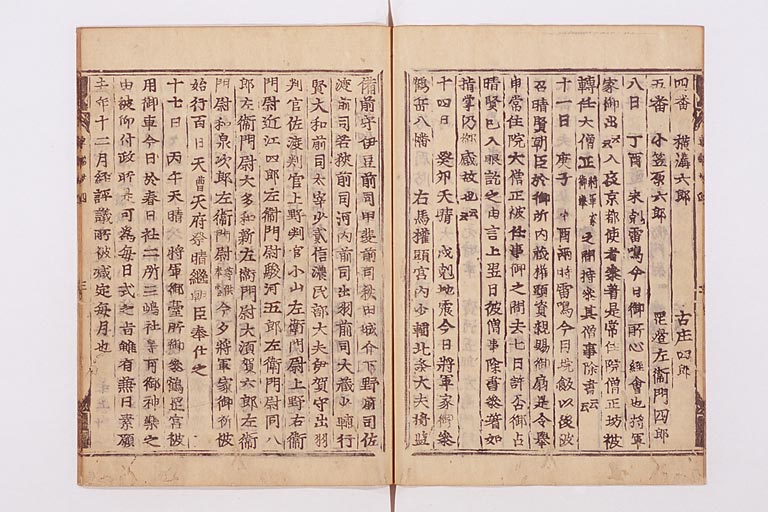 四番 横溝六郎 古庄四郎
五番 小笠原六郎 足立左衛門四郎
八日 丁酉 未剋雷鳴今日御所心經會也將軍
家御出云々入夜京都使者參著是常住院僧正坊被
轉任大僧正將軍家御舎弟之間持參其僧事除書云々
十一日 庚子 申酉兩時雷鳴今日埦飯以後被
召晴賢朝臣於御所内被親賜御扇是令擧
申常住院大僧正被任事御之間去七日許否御占
晴賢已入眼訖之由言上翌日彼僧事除書參著如
指掌乃御感故也云々
十四日 癸卯天晴 戌剋地震今日將軍家御參
鶴岳八幡 右馬權頭宮内少輔北条大夫將監
備前守伊豆前司甲斐前司秋田城介下野前司佐
渡前司若狹前司河内前司出羽前司大藏少輔行
賢大和前司太宰少貳信濃民部大夫伊賀守出羽
判官佐渡判官上野判官小山左衛門尉上野右衛
門尉近江四郎左衛門尉駿河五郎左衛門尉同八
郎左衛門尉大多和新左衛門尉大須賀六郎左衛
門尉和泉次郎左衛門尉今夕將軍家御祈被
始行百日天曹天府祭晴繼朝臣奉仕之
十七日 丙午天晴 將軍御臺所御參鶴岳宮被
用御車今日於春日社二所三嶋社等有御神樂之
由被仰付政所是可為毎日式之旨雖有兼日素願
去年十二月經評議所被減定毎月也